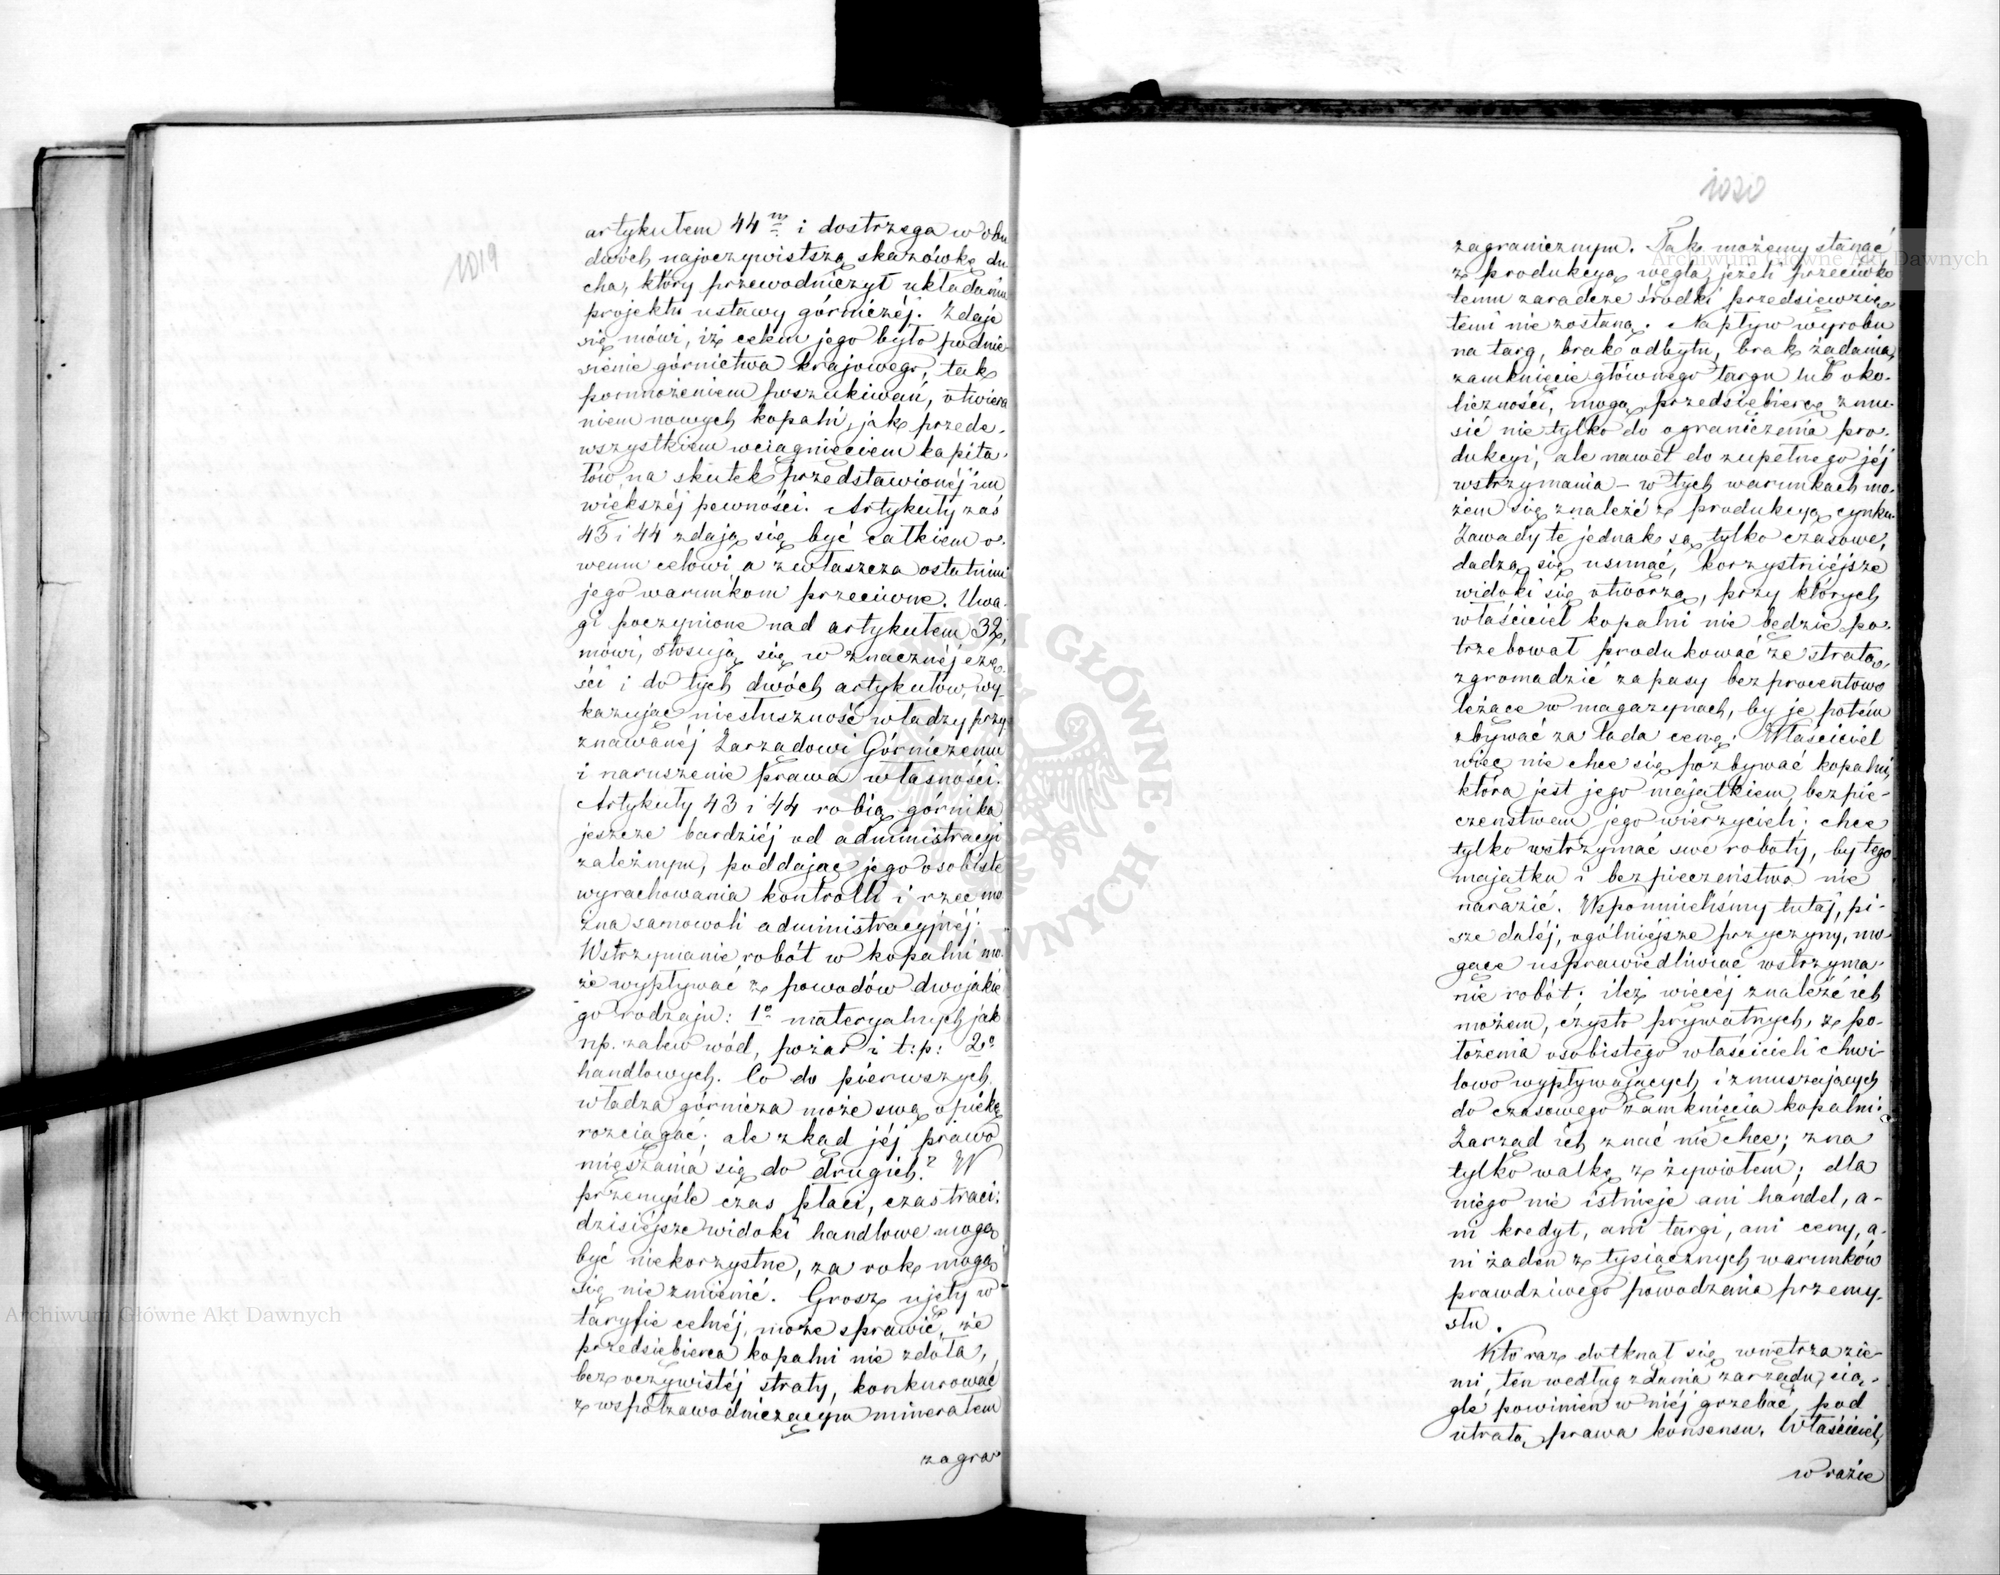 1019
artykułem 44m i dostrzega w obu
dwóch najoczywistszą skazówkę du
cha, który przewodniczył układaniu
projektu ustawy górniczéj. Zdaje
się mówi, iż celem jego było podnie-
sienie górnictwa krajowego, tak
pomnożeniem poszukiwań, otwiera
niem nowych kopalń, jak przede-
wszystkiem wciągnięciem kapita-
łów na skutek przedstawionéj im
większéj pewności. Artykuły zaś
43 i 44 zdają się być całkiem o-
wemu celowi a zwłaszcza ostatnim
jego warunkom przeciwne. Uwa-
gi poczynione nad artykułem 32,
mówi, stosują się w znacznéj czę-
ści i do tych dwóch artykułów, wy
kazując niesłuszność władzy przy
znawanéj Zarządowi Górniczemu
i naruszenie prawa własności.
Artykuły 43 i 44 robią górnika
jeszcze bardziéj od administracyi
zależnym, poddając jego osobiste
wyrachowania kontrolli i rzec mo
żna samowoli administracyjnéj.
Wstrzymanie robót w kopalni mo-
że wypływać z powodów dwojakie
go rodzaju: 1o materyalnych jak
np. zalew wód, pożar i t: p: 2o
handlowych. Co do pierwszych
władza górnicza może swą opiekę
rozciągać; ale zkąd jéj prawo
mięszania się do drugich? W
przemyśle czas płaci, czas traci;
dzisiejsze widoki handlowe mogą
być niekorzystne, za rok mogą
się nie zmienić. Grosz ujęty w
taryfie celnéj, może sprawić, że
przedsiębierca kopalni nie zdoła,
bez oczywistéj straty, konkurować
z współzawodniczącym minerałem
zagra
1020
zagranicznym. Tak możemy stanąć
z produkcyą węgla, jeżeli przeciwko
temu zaradcze środki przedsiewzię
temi nie zostaną. Napływ wyrobu
na targ, brak odbytu, brak żądania,
zamknięcie głównego targu lub oko-
liczności, mogą przedsiębiercę zmu-
sić nie tylko do ograniczenia pro-
dukcyi, ale nawet do zupełnego jéj
wstrzymania – w tych warunkach mo-
żem się znaleźć z produkcyą cynku.
Zawady te jednak są tylko czasowe,
dadzą się usunąć, korzystniéjsze
widoki się otworzą, przy których
właściciel kopalni nie będzie po-
trzebował produkować ze stratą,
zgromadzić zapasy bezprocentowo
leżące w magazynach, by je potém
zbywać za lada cenę. Właściciel
więc nie chce się pozbywać kopalni,
która jest jego majątkiem, bezpie-
czeństwem jego wierzycieli; chce
tylko wstrzymać swe roboty, by tego
majątku i bezpieczeństwa nie
narazić. Wspomnieliśmy tutaj, pi-
sze daléj, ogólniejsze przyczyny, mo-
gące usprawiedliwiać wstrzyma-
nie robót; ileż więcéj znaleźć ich
możem, czysto prywatnych, z po-
łożenia osobistego właścicieli chwi-
lowo wypływających i zmuszających
do czasowego zamknięcia kopalni;
Zarząd ich znać nie chce; zna
tylko walkę z żywiołem; dla
niego nie istnieje ani handel, a-
ni kredyt, ani targi, ani ceny, a-
ni żaden z tysiącznych warunków
prawdziwego powodzenia przemy-
słu.
Kto raz dotknął się wnętrza zie-
mi, ten według zdania zarządu, cią-
gle powinien w niéj grzebać, pod
utratą prawa konsensu. Właściciel,
w razie
Archiwum Główne Akt Dawnych
Archiwum Główne Akt Dawnych